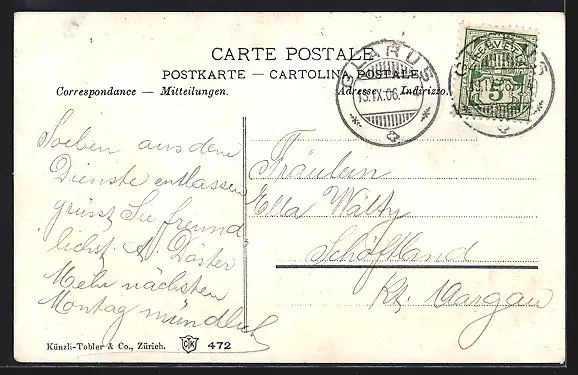 CARTE POSTALE
POSTKARTE — CARTOLINA POSTALE
Correspondance — Mitteilungen.
Adresse — Indirizzo.
GLARUS
13.IX.06.
HELVETIA
5
Soeben aus dem
Dienste entlassen
grüsst Sie freund
lichst. A. Däster
Mehr nächsten
Montag mündlich
Fräulein
Ella Wälty
Schöftland
Kt. Aargau
Künzli-Tobler & Co., Zürich.
472